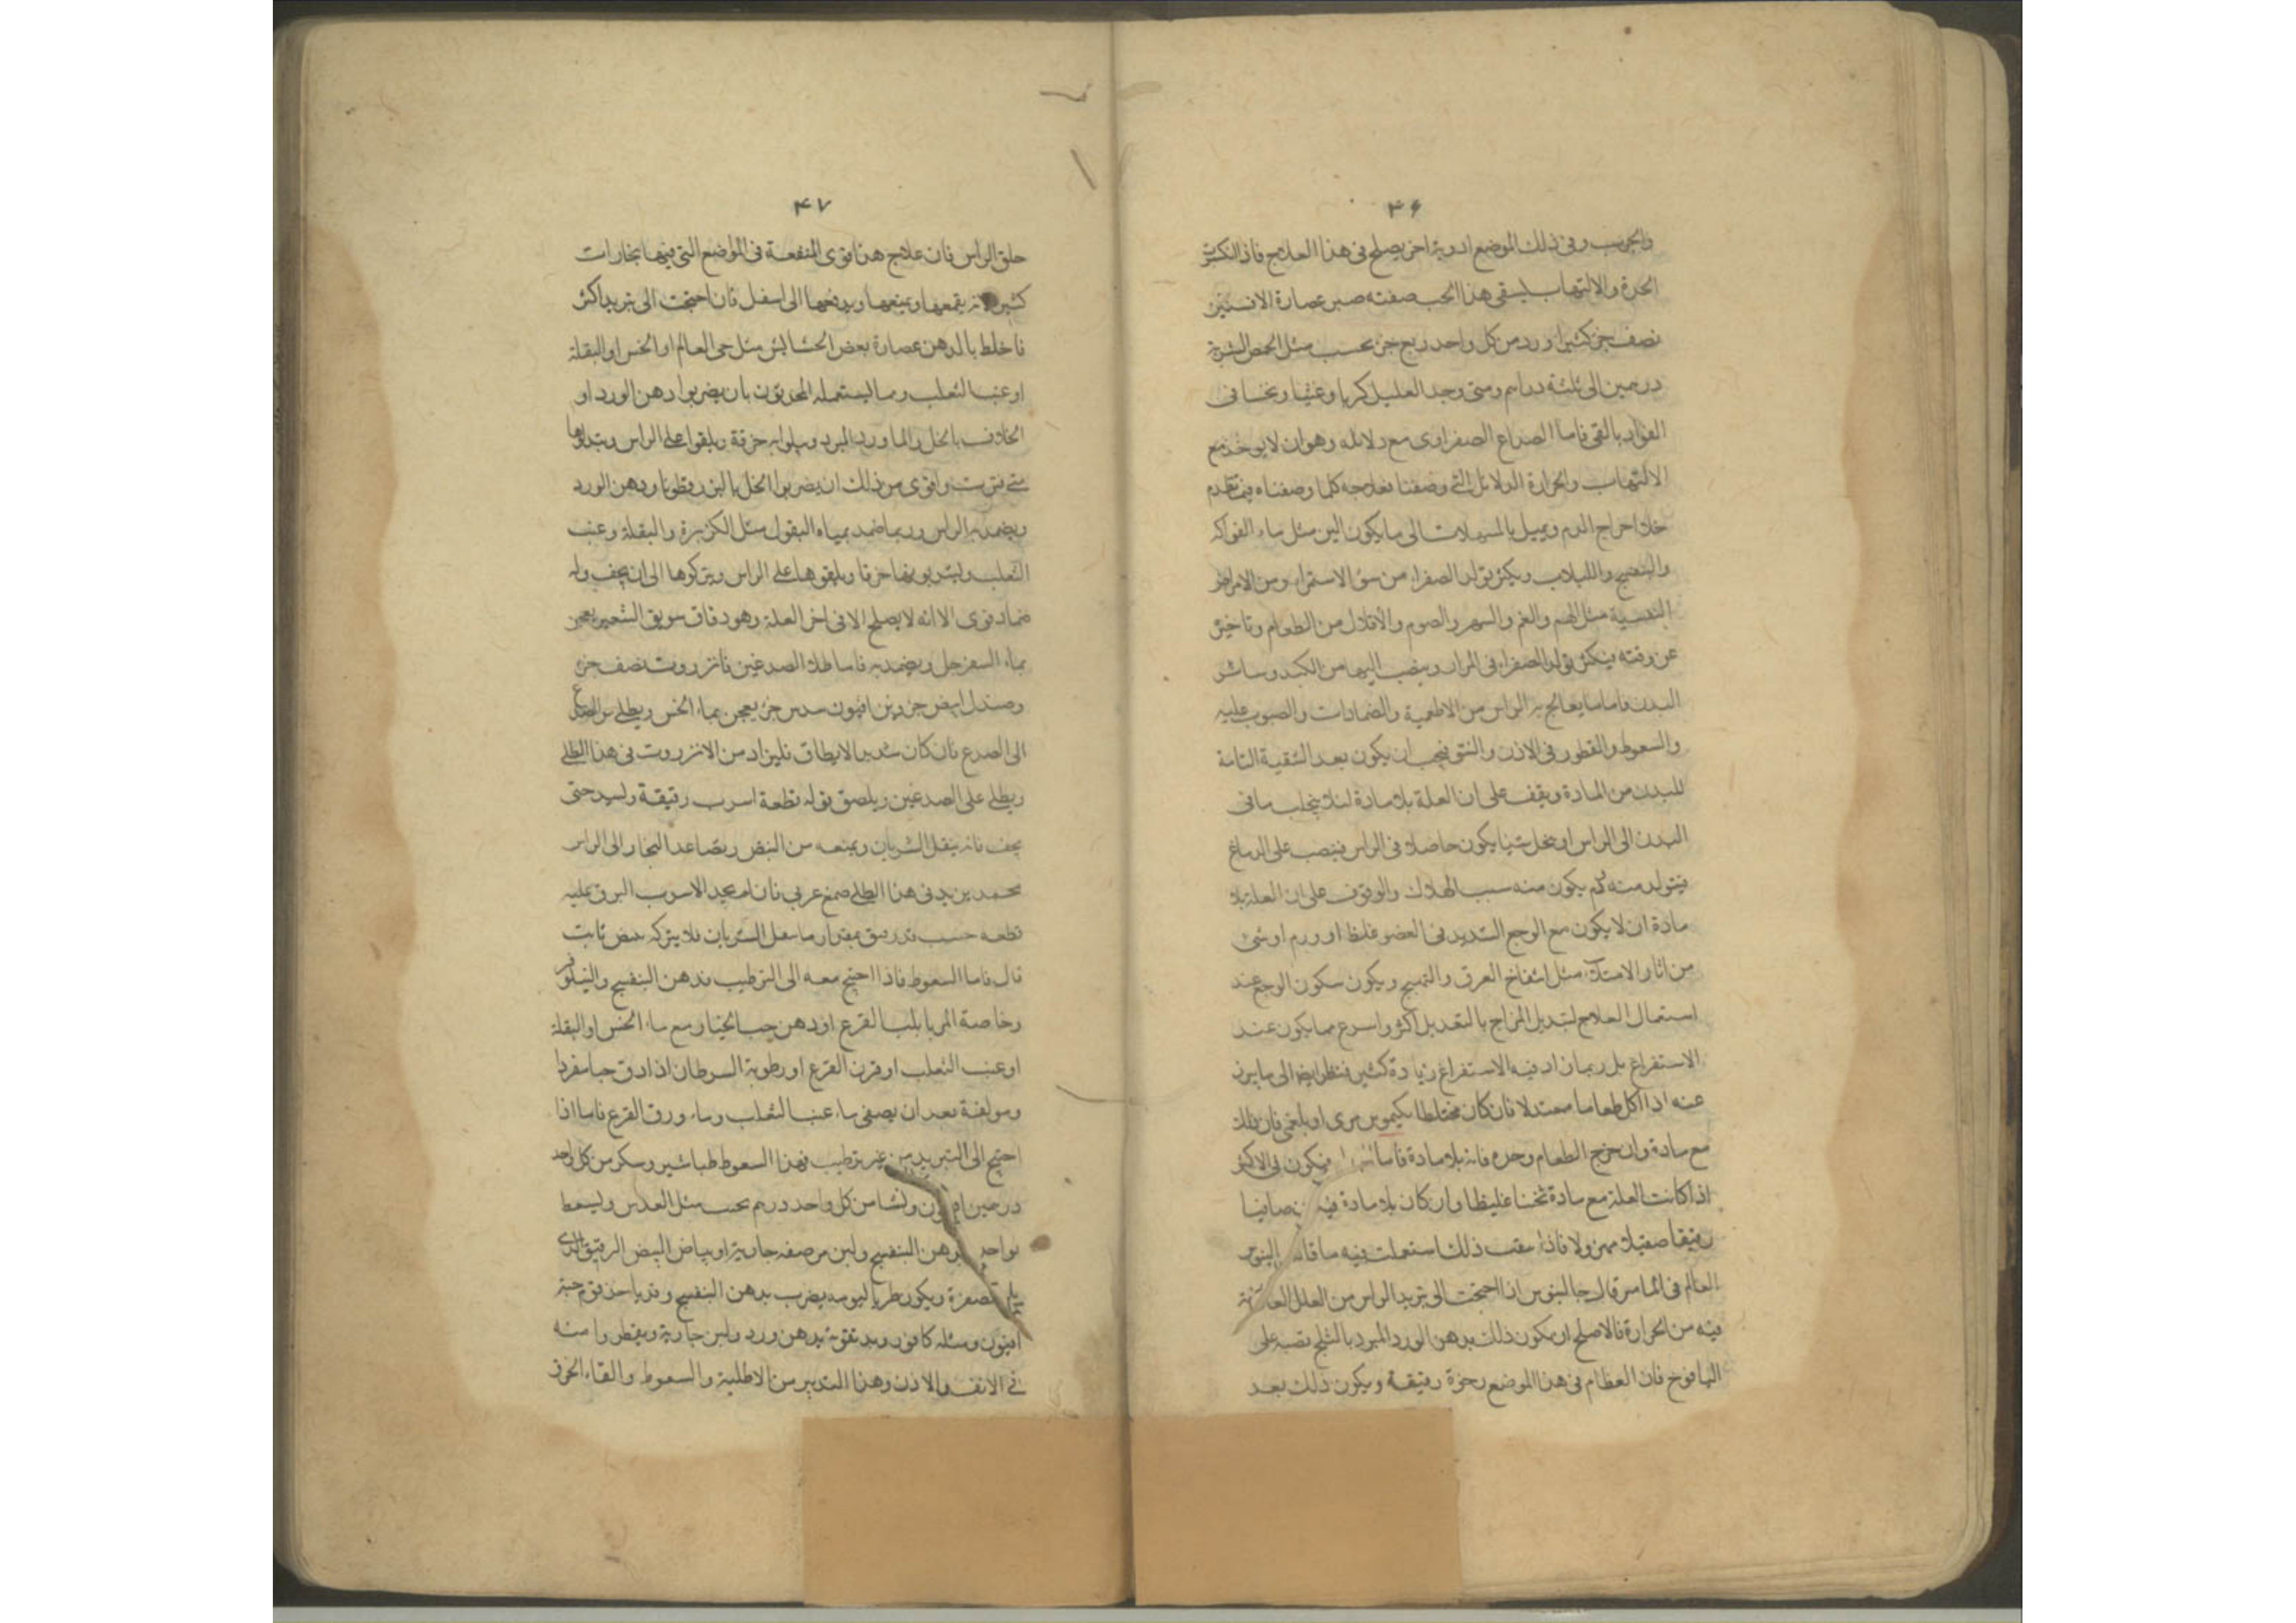 ۴۶
وفى ذلك الموضع ادوية اخر يصلح فى هذا العلاج فاذا
الحدة والالتهاب ليسقى هذا الحب صفته صبر عصارة الافسنتين
نصف جز كثيرا ورد من كل واحد ربع جز يحبب مثل الحمص الشربة
درهمين الى ثلثة دراهم ومتى وجد العليل كربا وغثيا ونخسا فى
الفواد بالقى فاما الصداع الصفراوى مع دلايله وهو ان لا يوخذ مع
الالتهاب والحرارة الدلائل التى وصفنا فعلاجه كلما وصفناه فيما تقدم
خلا اخراج الدم ويميل بالمسهلات الى ما يكون الين مثل ماء الفواكه
والبنفسج واللبلاب ويكثر تولد الصفراء من سوء الاستمراء ومن الامراض
النفسية مثل الهم والغم والسهر والصوم والاقلال من الطعام وتاخيره
عن وقته فيكثر تولد الصفراء فى المرار وينصب اليها من الكبد وسائر
البدن فاما ما يعالج به الراس من الاطعمة والضمادات والصبوب عليه
والسعوط والقطور فى الاذن والنتق فيجب ان يكون بعد التنقية التامة
للبدن من المادة ويقف على ان العلة بلا مادة لئلا ينجلب ما فى
البدن الى الراس او يحل شيئا يكون حاصلا فى الراس فينصب على الدماغ
فيتولد منه ورم يكون منه سبب الهلاك والوقوف على ان العلة بلا
مادة ان لا يكون مع الوجع الشديد فى العضو غلظ او ورم او شئ
من اثار الامتلاء مثل انتفاخ العرق والتهيج ويكون سكون الوجع عند
استعمال العلاج لتبديل المزاج بالتعديل اكثر واسرع مما يكون عند
الاستفراغ بل ربما زاد فيه الاستفراغ زيادة كثيرة فنظر ايضا الى ما يبرز
عنه اذا اكل طعاما معتدلا فان كان مختلطا بكيموس مرى او بلغمى فان ذلك
مع مادة وان خرج الطعام وحده فانه بلا مادة فاما فيكون فى الاكثر
اذا كانت العلة مع مادة ثخنا غليظا وان كان بلا مادة صافيا
رقيقا صقيلا مهزولا فاذا عقب ذلك استعملت فيه ما قاله
العالم فى المامر قال جالينوس ان احتجت الى تبريد الراس من العلل
فيه من الحرارة فالاصلح ان يكون ذلك بدهن الورد المبرد بالثلج تصبه على
اليافوخ فان العظام فى هذا الموضع رخوة رقيقة ويكون ذلك بعد
۴۷
حلق الراس فان علاج هذا قوى المنفعة فى المواضع التى فيها بخارات
كثيرة لانه يقمعها ويمنعها ويدفعها الى اسفل فان احتجت الى تبريد اكثر
فاخلط بالدهن عصارة بعض الحشايش مثل حى العالم او الخس او البقلة
او عنب الثعلب ومما يستعمله المحدثون بان يضربوا دهن الورد او
الخلاف بالخل والماورد المبرد ويبلوا به خرقة ويلقوا على الراس ويبدلوها
متى فترت واقوى من ذلك ان يضربوا الخل بالبزرقطونا ودهن الورد
ويضمد به الراس وربما ضمد بمياه البقول مثل الكزبرة والبقلة وعنب
الثعلب ويشربون بها خرقا ويلقوها على الراس ويتركوها الى ان يجف وله
ضماد قوى الا انه لا يصلح الا فى اخر العلة وهو دقاق سويق الشعير يعجن
بماء السفرجل ويضمد به فاما طلاء الصدغين فانزروت نصف جز
وصندل ابيض جزوين افيون سدس جز يعجن بماء الخس ويطلى من الصدغ
الى الصدغ فان كان شديد الاطباق فليزاد من الانزروت فى هذا الطلى
ويطلى على الصدغين ويلصق فوقه قطعة اسرب رقيقة وليشد حتى
يجف فانه يثقل الشريان ويمنعه من النبض وتصاعد البخار الى الراس
محمد يزيد فى هذا الطلى صمغ عربى فان لم يجد الاسرب الزق عليه
قطعة خشب قد رقق بمقدار ما يثقل الشريان فلا يتركه ينبض ثابت
قال فاما السعوط فاذا احتيج معه الى الترطيب فدهن البنفسج والنيلوفر
وخاصة المربا بلب القرع او دهن حب الخيار مع ماء الخس او البقلة
او عنب الثعلب او قرن القرع او رطوبة السرطان اذا دق حيا مفردا
ومولفة بعد ان يصفى ماء عنب الثعلب وماء ورق القرع فاما اذا
احتيج الى التبريد من غير ترطيب فهذا السعوط طباشير وسكر من كل واحد
درهمين افيون ونشا من كل واحد درهم يحبب مثل العدس وليسعط
بواحدة بدهن البنفسج ولبن مرضعة جارية او بياض البيض الرقيق الذى
يلى الصفرة ويكون طريا ليومه يضرب بدهن البنفسج وقد ياخذ قوم حبة
افيون ومثله كافور ويدقونه بدهن ورد ولبن جارية ويقطروا منه
فى الانف والاذن وهذا التدبير من الاطلية والسعوط والقاء الخرق